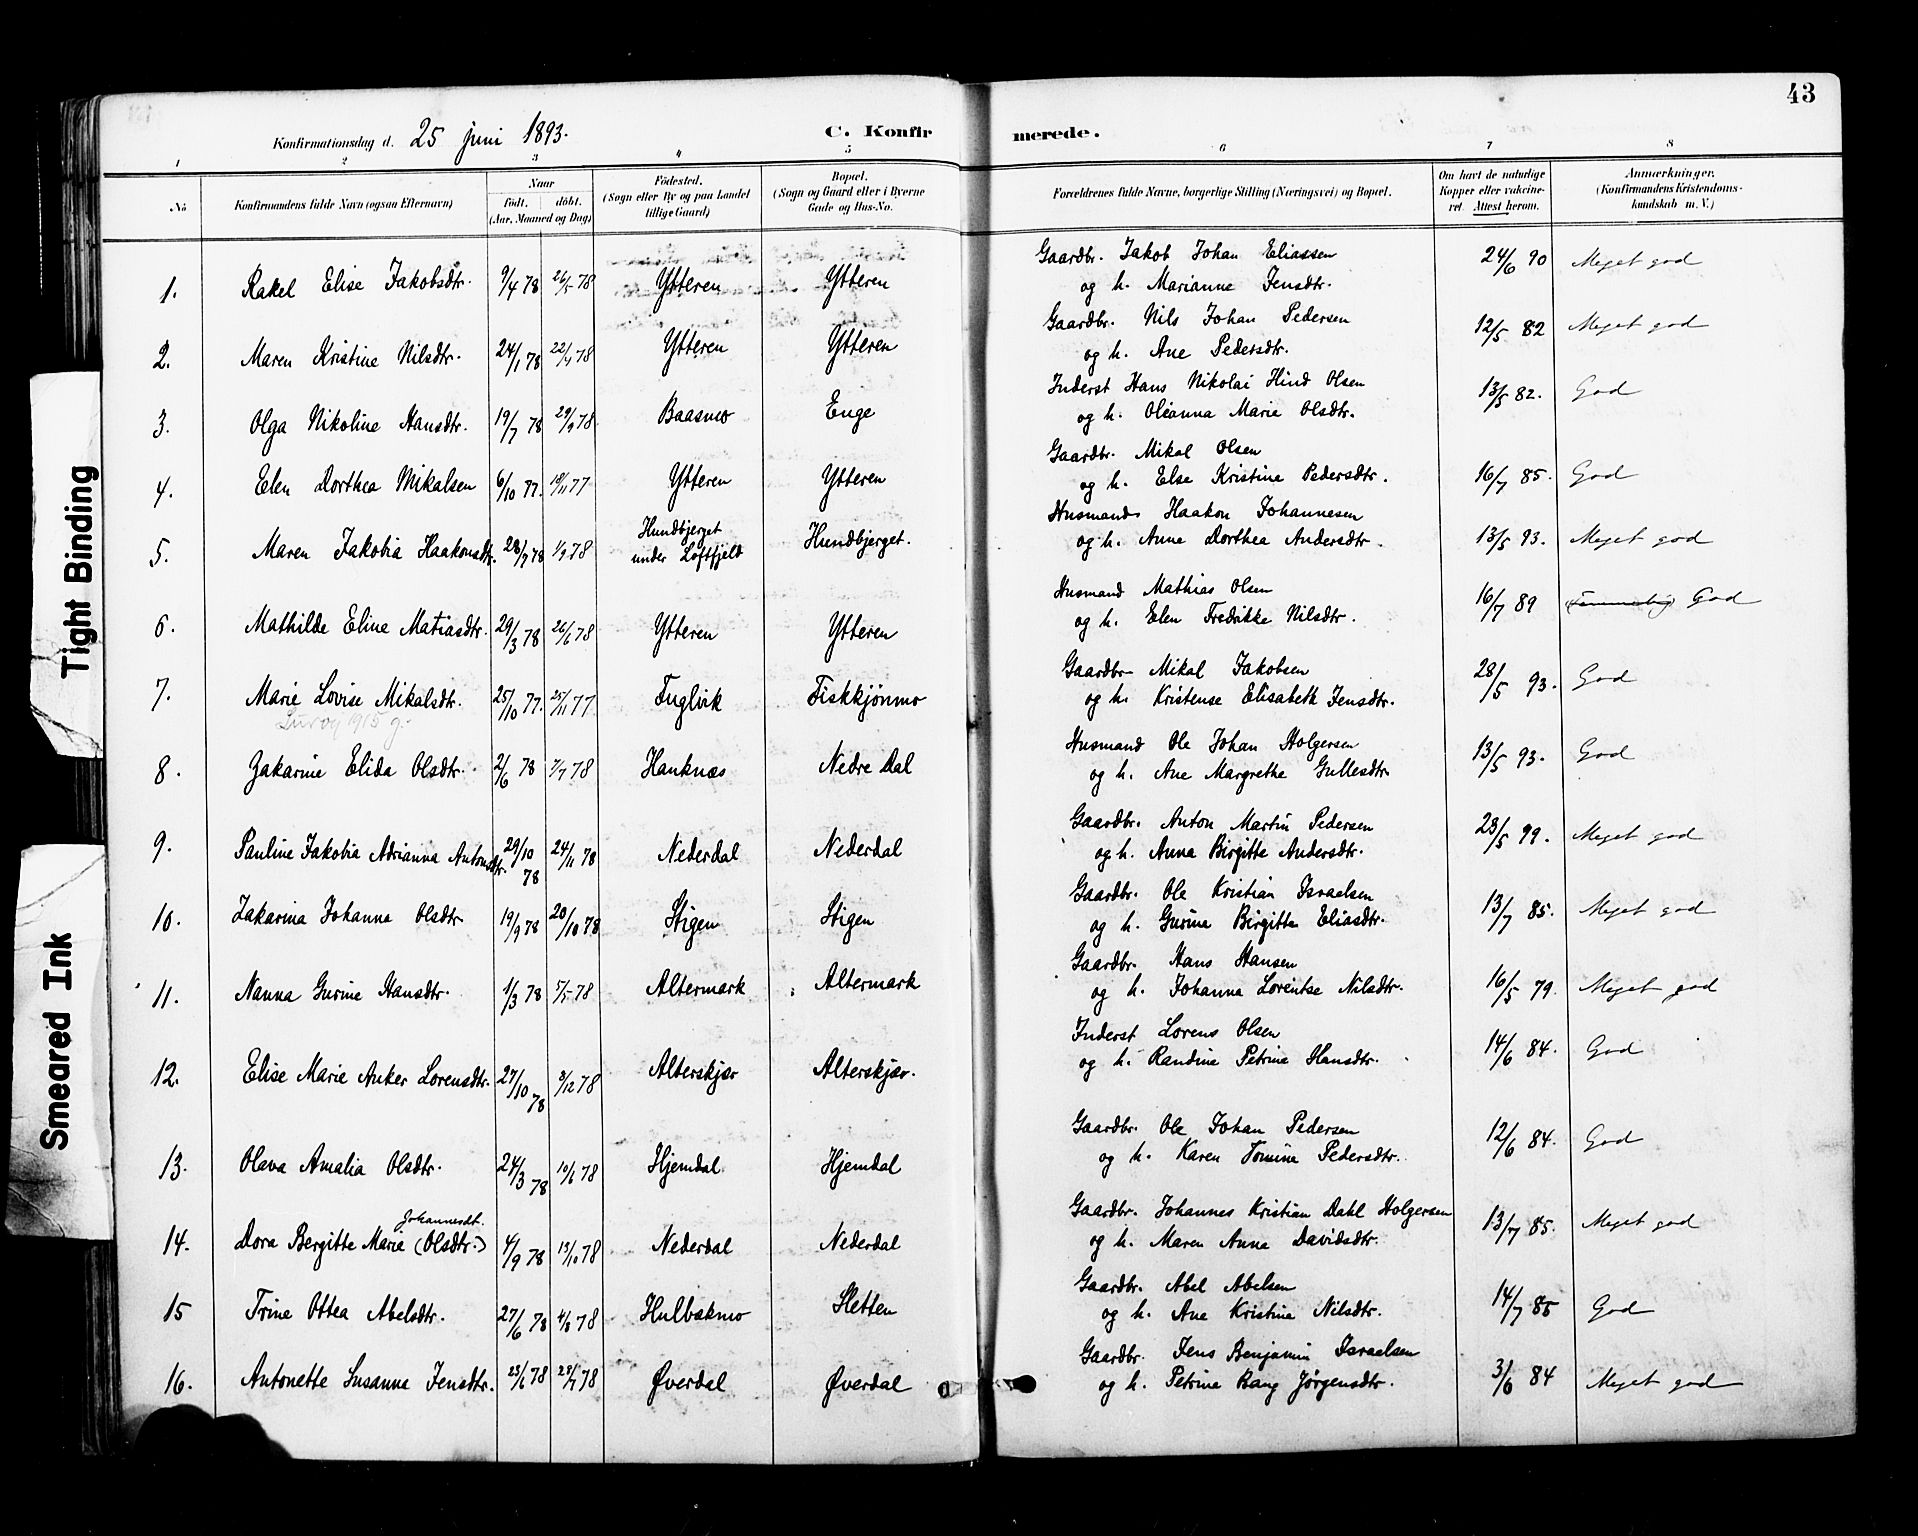 43
Konfirmationsdag d. 25 juni 1893.
C. Konfirmerede.
1 2 3 4 5 6 7 8
No
Konfirmandens fulde Navn (ogsaa Efternavn)
Naar
født. døbt.
(Aar, Maaned og Dag)
Födested.
(Sogn eller By og paa Landet tillige Gaard)
Bopæl.
(Sogn og Gaard eller i Byerne Gade og Hus-No.
Forældrenes fulde Navne, borgerlige Stilling (Næringsvei) og Bopæl.
Om havt de naturlige Kopper eller vakcineret. Attest herom.
Anmerkninger.
(Konfirmandens Kristendomskundskab m. V.)
1. Rakel Elise Jakobsdtr. 9/4 78 26/5 78 Ytteren Ytteren Gaardbr. Jakob Johan Eliassen 24/6 90 Meget god
og h. Marianne Jensdtr.
2. Maren Kristine Nilsdtr. 24/1 78 22/4 78 Ytteren Ytteren Gaardbr. Nils Johan Pedersen 12/5 82 Meget god
og h. Ane Pedersdtr.
3. Olga Nikoline Hansdtr. 19/7 78 29/9 78 Baasmo Enge Inderst Hans Nikolai Hind Olsen 13/5 82. God
og h. Oleanna Marie Olsdtr.
4. Elen Dorthea Mikalsen 6/10 77. 18/11 77 Ytteren Ytteren Gaardbr. Mikal Olsen 16/7 85. God
og h. Else Kristine Pedersdtr.
5. Maren Jakobia Haakonsdtr. 28/7 78 1/9 78 Hundbjerget under Loftfjeld Hundbjerget. Husmand Haakon Johannesen 13/5 93. Meget god
og h. Anne Dorthea Andersdtr.
6. Mathilde Eline Matiasdtr. 29/3 78 26/6 78 Ytteren Ytteren Husmand Mathias Olsen 16/7 89 Temmelig God
og h. Elen Fredrikke Nilsdtr.
7. Marie Lovise Mikalsdtr. 25/10 77. 25/11 77 Fuglvik Fiskkjønmo Gaardbr. Mikal Jakobsen 28/5 93. God
1915 g.
og h. Kristense Elisabeth Jensdtr.
8. Zakarine Elida Olsdtr. 2/6 78 7/7 78 Hauknæs Nedre Dal Husmand Ole Johan Holgersen 13/5 93. God
og h. Ane Margrethe Gullesdtr
9. Pauline Jakobia Adrianna Antonsdtr. 29/10 78 24/11 78 Nederdal Nederdal Gaardbr. Anton Martin Pedersen 28/5 99. Meget god
og h. Anna Birgitte Andersdtr.
10. Zakarina Johanna Olsdtr 19/9 78 20/10 78 Stigen Stigen Gaardbr. Ole Kristian Israelsen 13/7 85. Meget god
og h. Gurina Birgitta Eliasdtr.
11. Nanna Gurine Hansdtr. 1/3 78 7/5 78 Altermark Altermark Gaardbr. Hans Hansen 16/5 79. Meget god
og h. Johanna Lorentse Nilsdtr.
12. Elise Marie Anker Lorensdtr. 27/10 78 3/12 78 Alterskjær Alterskjær. Inderst Lorens Olsen 14/6 84. God
og h. Randine Petrine Hansdtr.
13. Olava Amalia Olsdtr. 24/3 78 10/6 78 Hjemdal Hjemdal Gaardbr. Ole Johan Pedersen 12/6 84. God
og h. Karen Tomine Pedersdtr.
14. Dora Bergitte Marie Johannesdt. (Olsdtr.) 4/9 78 13/10 78 Nederdal Nederdal Gaardbr. Johannes Kristian Dahl Holgersen 13/7 85. Meget god
og h. Maren Anna Davidsdtr.
15 Trine Ottea Abelsdtr. 27/6 78 4/8 78 Hulbækmo Sletten Gaardbr. Abel Abelsen 14/7 85 God
og h. Ane Kristina Nilsdtr.
16. Antonette Susanna Jensdtr. 23/6 78 28/7 78 Øverdal Øverdal Gaardbr. Jens Benjamin Israelsen 3/6 84 Meget god
og h. Petrine Bang Jörgensdtr.
Tight Binding
Smeared Ink